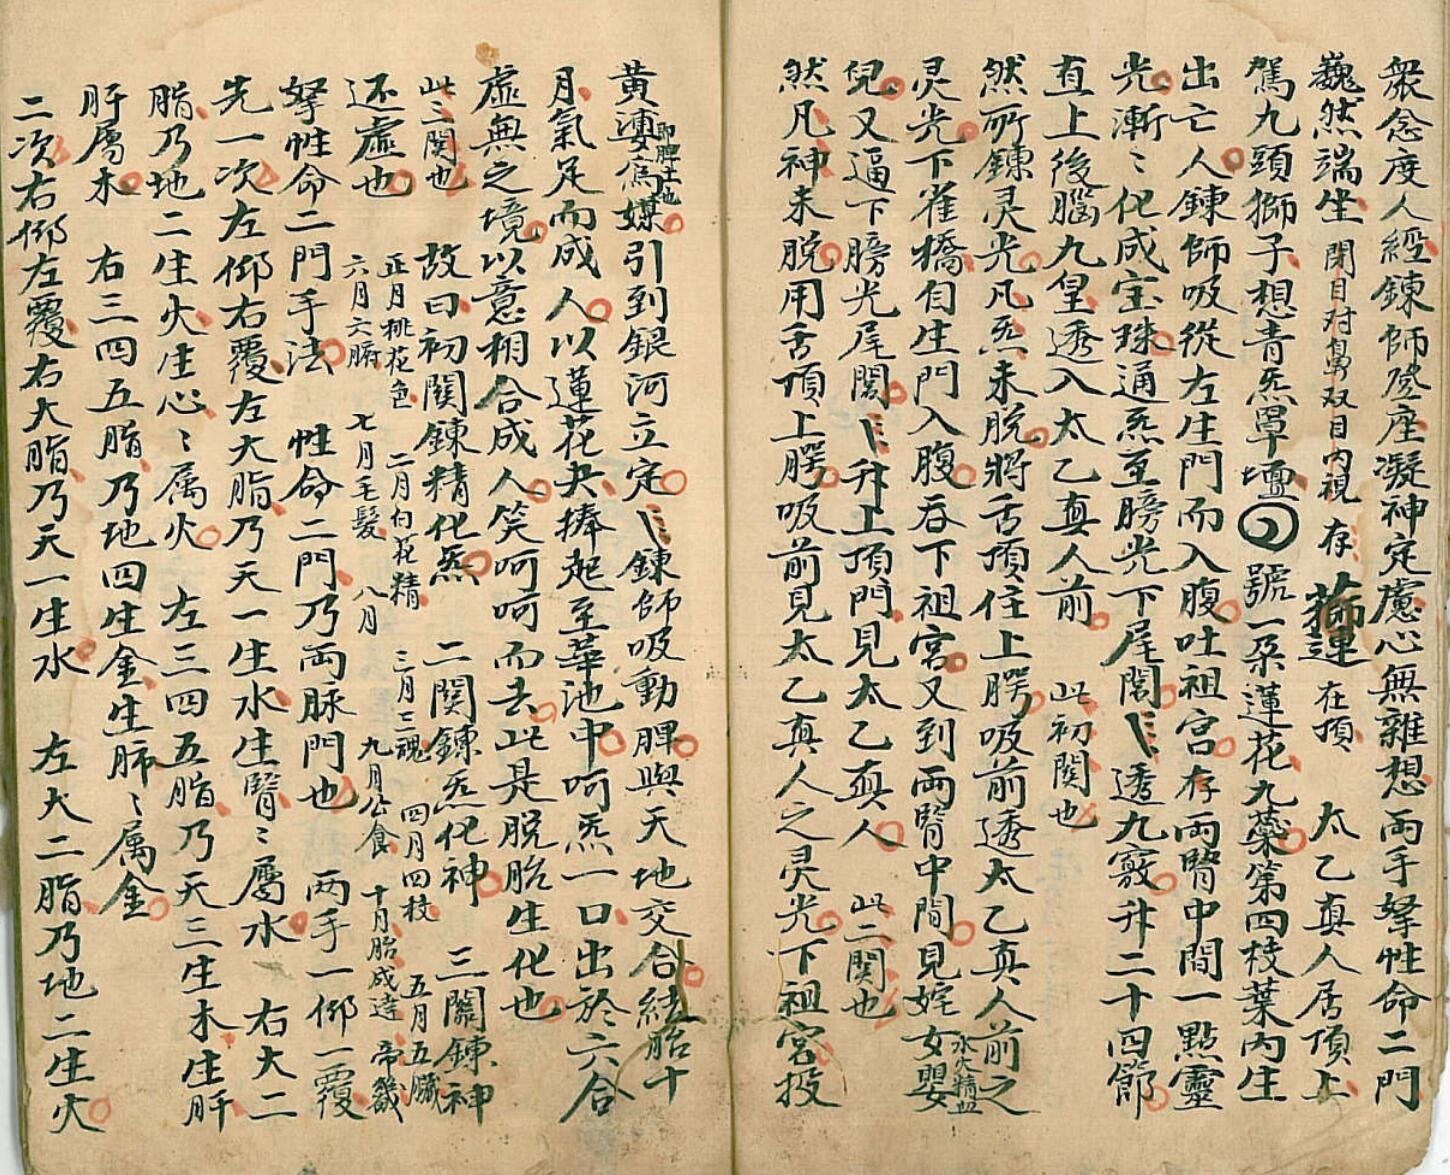 衆念度人經鍊師登座凝神定慮心無雜想兩手拏性命二門
巍然端坐閉目对鼻双目內視存 蓮在頂 太乙真人居頂上
駕九頭獅子想青炁罩壇 號一朶蓮花九蕊第四枝葉內生
出亡人鍊師吸從左生門而入腹吐祖宮存兩腎中間一點靈
光漸〻化成宝珠通炁至膀光下尾閭〻〻透九竅升二十四節
直上後腦九皇透入太乙真人前 此初関也
然所鍊灵光凡炁未脫將舌頂住上腭吸前透太乙真人前之
灵光下雀橋自生門入腹吞下祖宮又到兩腎中間見姹女嬰水火精血
兒又逼下膀光尾閭〻〻升上頂門見太乙真人 此二関也
然凡神未脫用舌頂上腭吸前見太乙真人之灵光下祖宮投
黄婆即脾土也為媒引到銀河立定〻〻鍊師吸動脾與天地交合結胎十
月氣足而成人以蓮花夬捧起至華池中呵炁一口出於六合
虛無之境以意相合成人笑呵呵而去此是脱胎生化也
此三関也 故曰初関鍊精化炁 二関鍊炁化神 三關鍊神
还虛也 正月桃花色 二月白花精 三月三魂 四月四枝 五月五臟
六月六腑 七月毛髮 八月 九月公食 十月胎成達帝畿
拏性命二門手法 性命二門乃両脉門也 两手一仰一覆
先一次左仰右覆左大脂乃天一生水生腎〻屬水 右大二
脂乃地二生火生心〻属火 左三四五脂乃天三生木生肝
肝屬木 右三四五脂乃地四生金生肺〻属金
二次右仰左覆右大脂乃天一生水 左大二脂乃地二生火